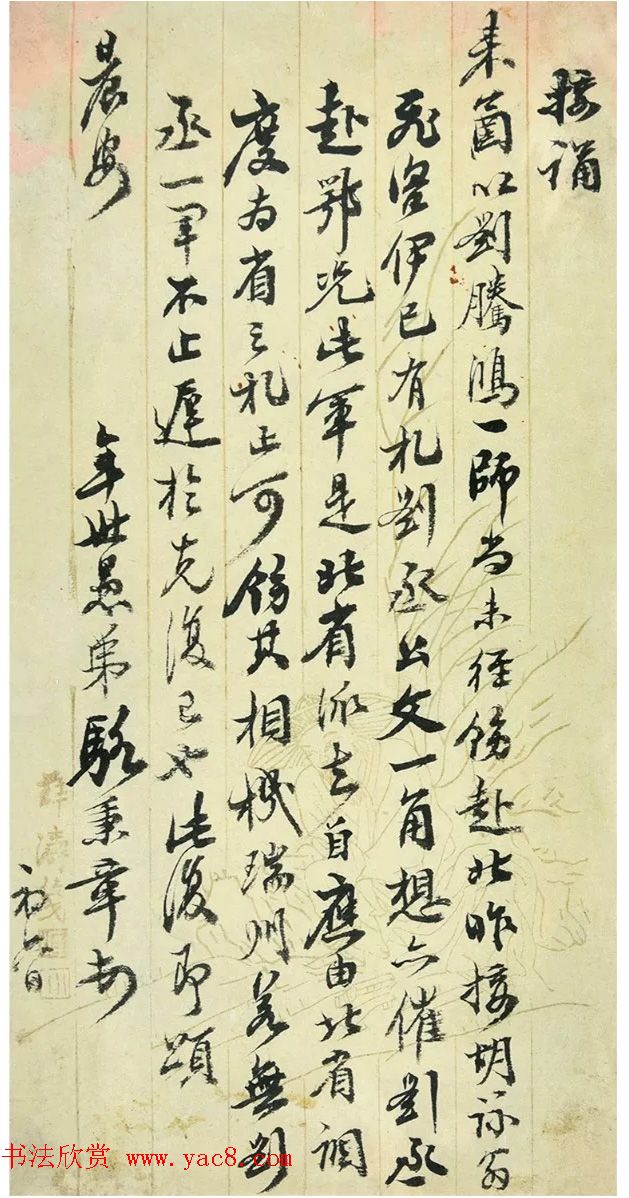 接誦
来函以劉騰鴻一師尚未徑飭赴北昨接胡詠翁
飛咨伊已有札劉丞公文一角想亦催劉丞
赴鄂况此軍是北省派去自應由北省調
度南省之札止可飭其相機瑞州若無劉
丞一軍不止遲於克復已也此復即頌
晨安
年世愚弟駱秉章頓
初六日
书法欣赏 www.yac8.com